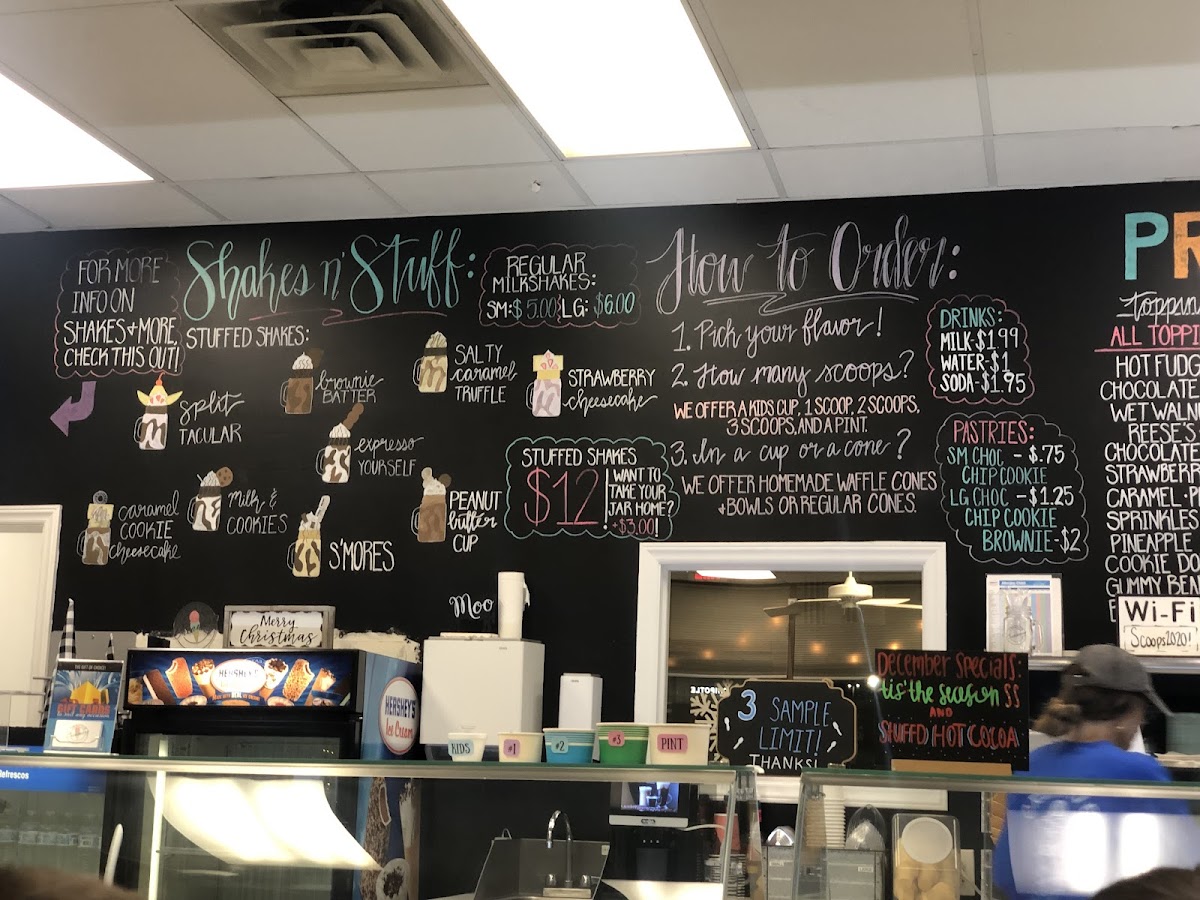 FOR MORE
INFO ON
SHAKES + MORE,
CHECK THIS OUT!
Shakes n' Stuff:
STUFFED SHAKES:
REGULAR
MILKSHAKES:
SM:$5.00 LG: $6.00
split
TACULAR
brownie
BATTER
SALTY
caramel
TRUFFLE
STRAWBERRY
cheesecake
expresso
YOURSELF
caramel
COOKIE
cheesecake
Milk &
COOKIES
S'MORES
PEANUT
butter
CUP
STUFFED SHAKES
$12
WANT TO
TAKE YOUR
JAR HOME?
+$3.00!
Moo
How to Order:
1. Pick your flavor!
2. How many scoops?
WE OFFER A KIDS CUP, 1 SCOOP, 2 SCOOPS,
3 SCOOPS, AND A PINT.
3. In a cup or a cone?
WE OFFER HOMEMADE WAFFLE CONES
+ BOWLS OR REGULAR CONES.
DRINKS:
MILK-$1.99
WATER-$1
SODA-$1.75
PASTRIES:
SM CHOC - $.75
CHIP COOKIE
LG CHOC - $1.25
CHIP COOKIE
BROWNIE-$2
PR
toppin
ALL TOPPI
HOT FUDG
CHOCOLATE
WET WALN
REESE'S
CHOCOLATE
STRAWBERR
CARAMEL
SPRINKLES
PINEAPPLE
COOKIE DO
GUMMY BEA
Wi-Fi
Scoops2020!
Merry
Christmas
HERSHEY'S
HERSHEY'S
Ice Cream
GIFT CARDS
efrescos
KIDS
#1
#2
#3
PINT
3 SAMPLE
LIMIT!
THANKS!
December Specials:
'tis the season SS
AND
STUFFD HOT COCOA